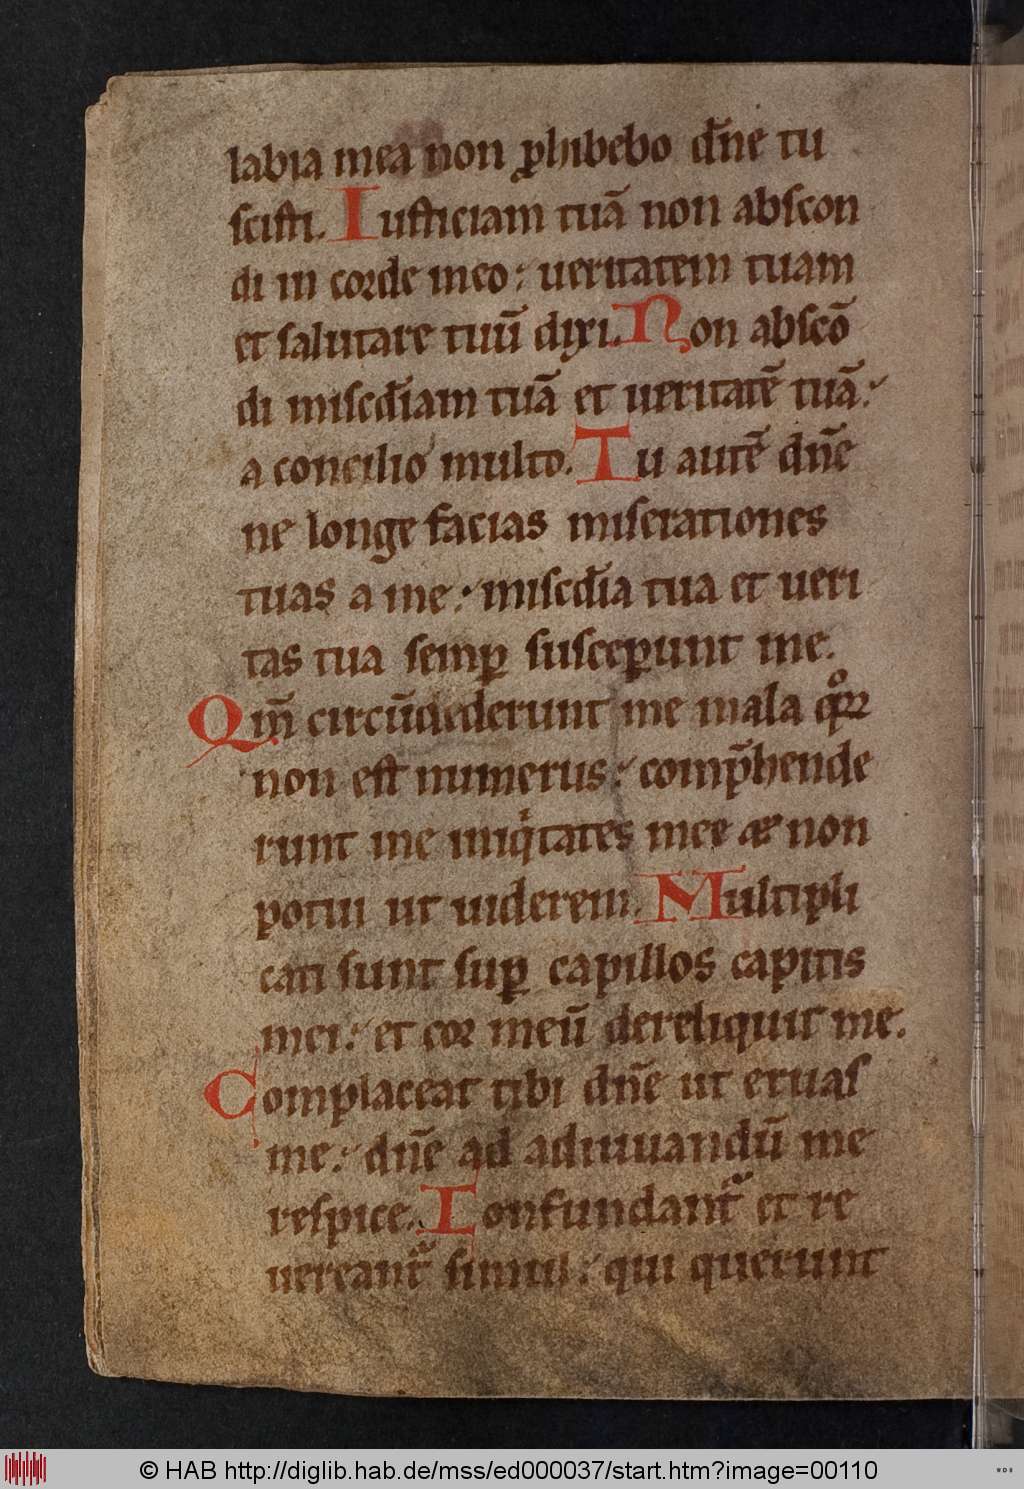 labia mea non ꝓhibebo dn̄e tu
scisti. Iusticiam tuā non abscon
di in corde meo: ueritatem tuam
et salutare tuū dixi. Non abscō
di misc̄diam tuā et ueritatē tuā:
a concilio multo. Tu autē dn̄e
ne longe facias miserationes
tuas a me: misc̄dia tua et ueri
tas tua semꝑ susceꝑunt me.
Qm̄ circūdederunt me mala qͦꝝ
non est numerus: comp̄hende
runt me iniqͥtates mee & non
potui ut uiderem. Multipli
cati sunt suꝑ capillos capitis
mei: et cor meū dereliquit me.
Complaceat tibi dn̄e ut eruas
me: dn̄e ad adiuuandū me
respice. Confundant᷑ et re
uereant᷑ simul: qui querunt
© HAB http://diglib.hab.de/mss/ed000037/start.htm?image=00110